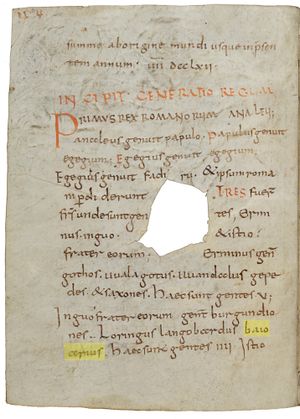 summo aborigine mundi usque inpsen
tem annum · IIII DCCLXII ·
INCIPIT GENERATIO REGUM
PRIMUS REX ROMANORUM ANALEU
ancoleus genuit papulo. Papulus genuit
egegium. Egegius genuit egegium.
Egegius genuit Fadi ru. & ipsi roma
ni derunt TRES FUER
frs undesuntgen tes, Erm
nus. inguo & istio.
frater eorum. Erminus gen
gothos. uualagotus. uuandolus gepe
des. & saxones. haecsunt gentes V.
Inguo frater eorum gent burgundio
nes. Loringus langobardus baio
carius. haecsunt gentes IIII. Istio